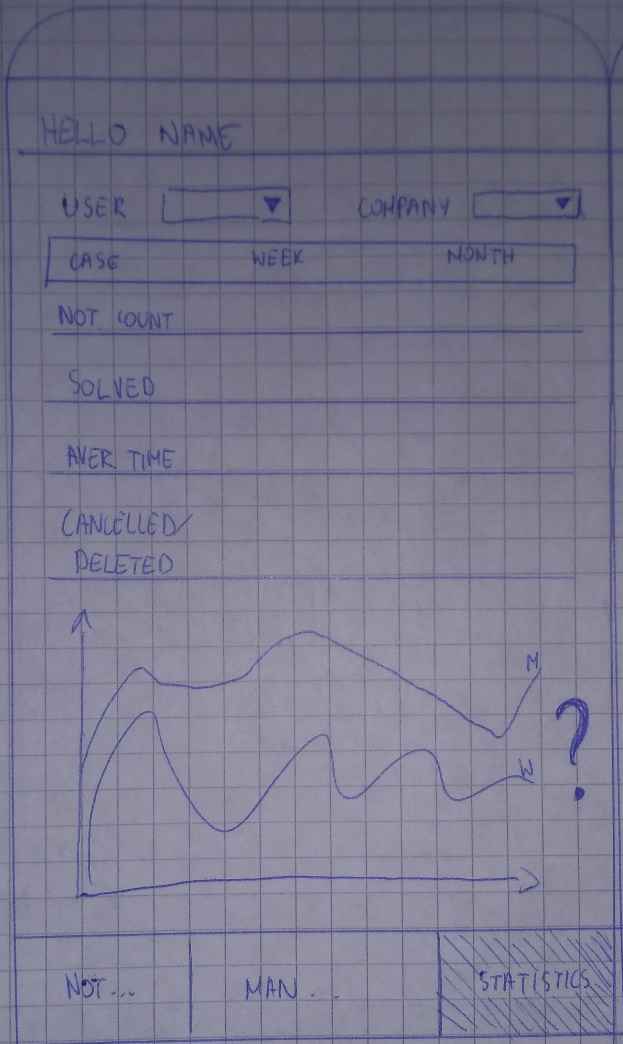 HELLO NAME
USER COMPANY
CASE WEEK MONTH
NOT COUNT
SOLVED
AVER. TIME
CANCELLED/
DELETED
M
W
?
NOT... MAN... STATISTICS